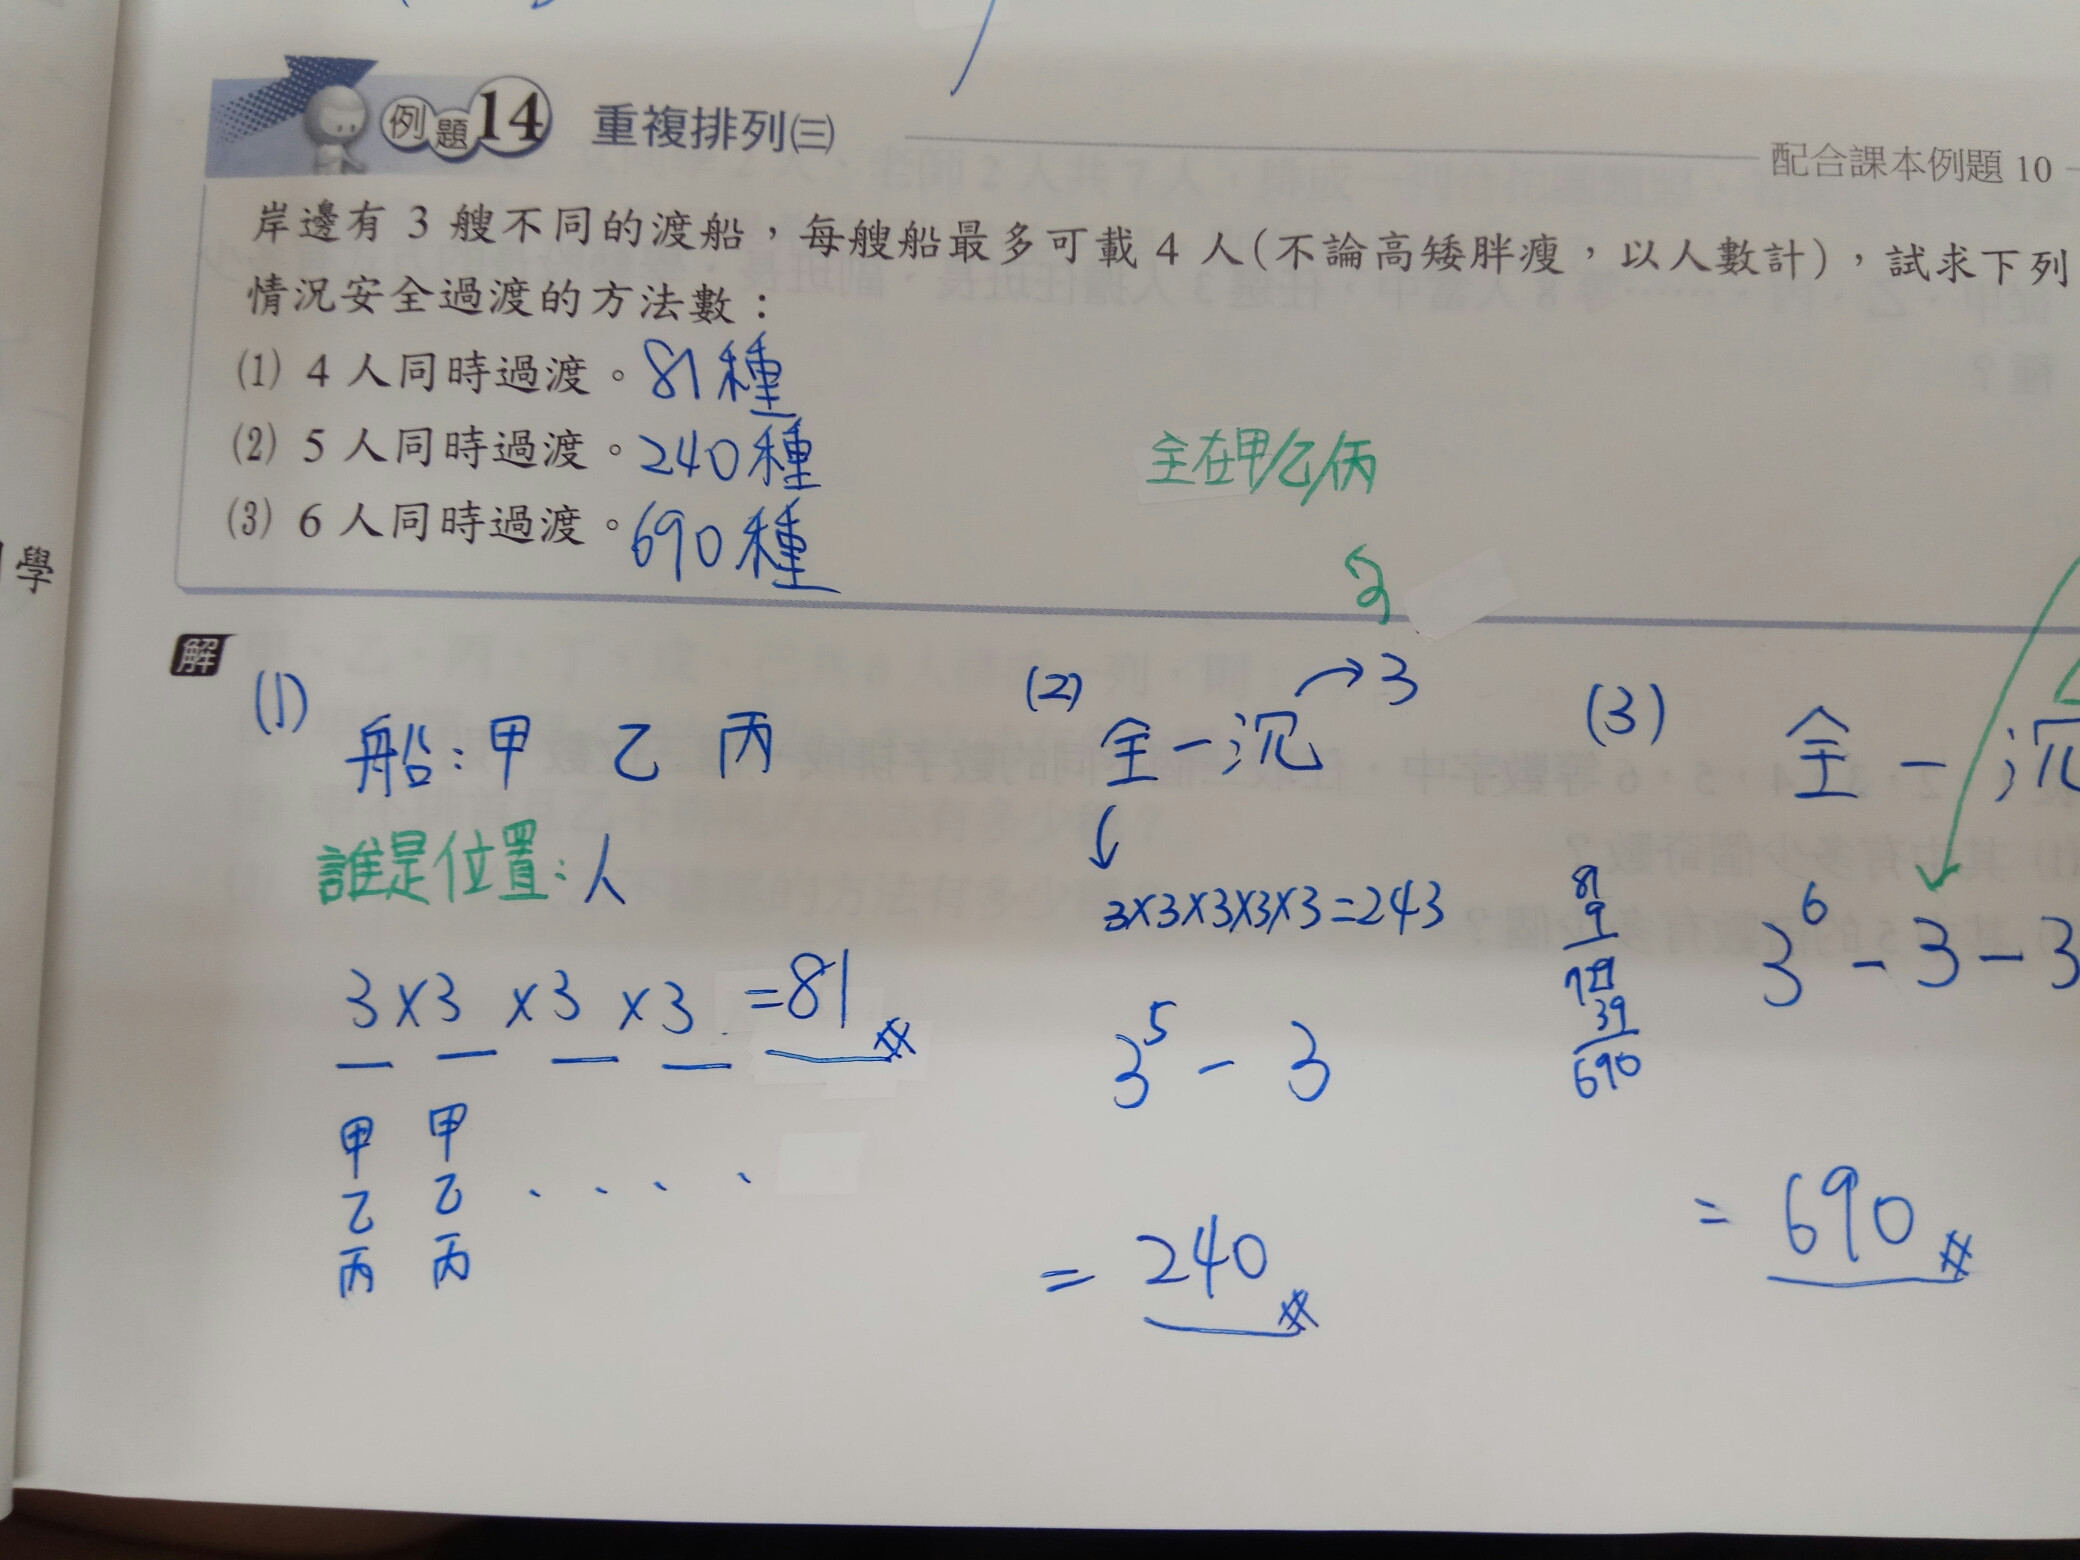 例題14 重複排列㈢
配合課本例題 10
岸邊有 3 艘不同的渡船，每艘船最多可載 4 人(不論高矮胖瘦，以人數計)，試求下列
情況安全過渡的方法數：
(1) 4 人同時過渡。81種
(2) 5 人同時過渡。240種
(3) 6 人同時過渡。690種
全在甲/乙/丙
學
解
(1)
船:甲 乙 丙
誰是位置:人
3×3×3×3=81
甲 甲
乙 乙 ····
丙 丙
(2)
全-沉→3
3×3×3×3×3=243
3⁵-3
=240
(3)
全-沉
81
9
729
39
690
3⁶-3-3
=690